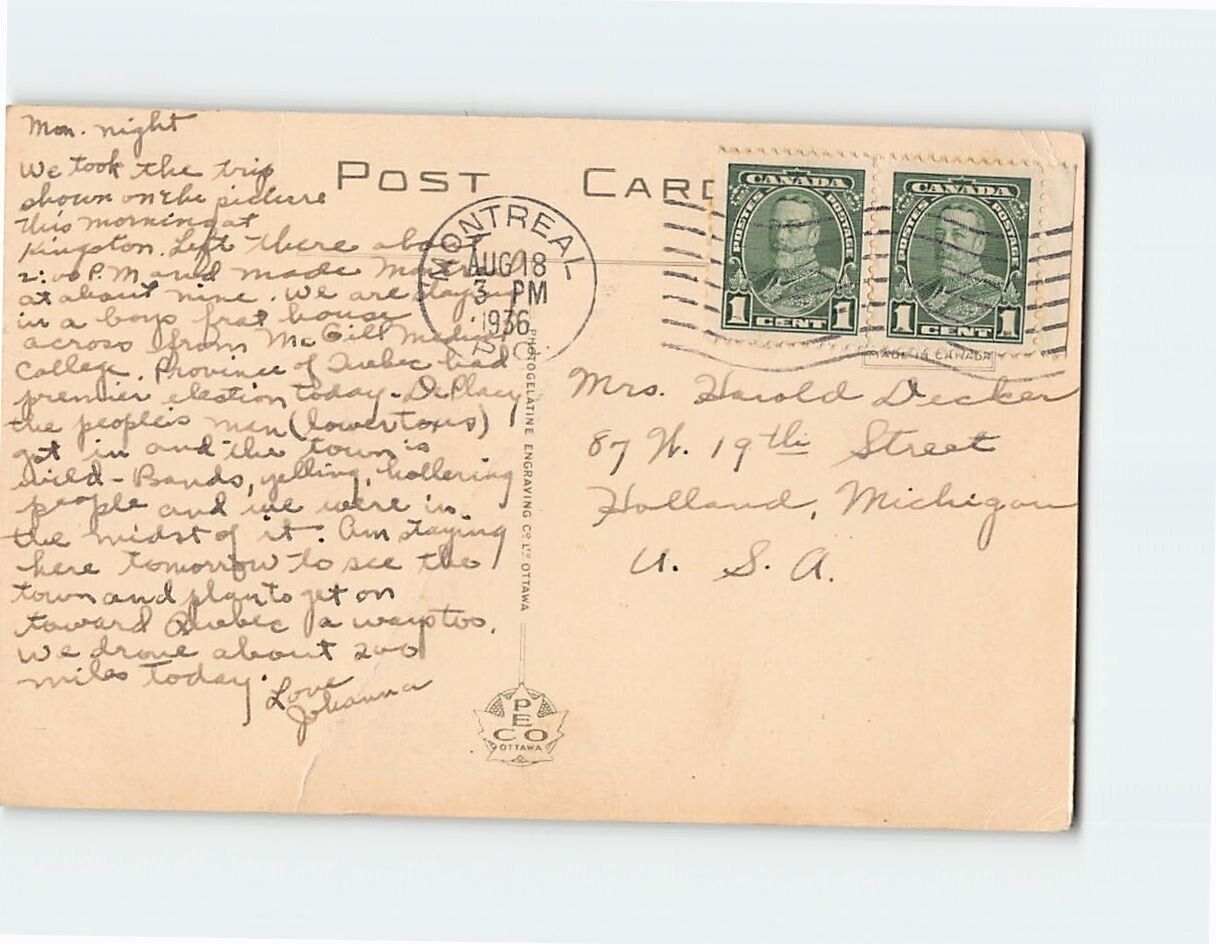 Mon. night
We took the trip
shown on the picture
this morning at
Kingston. Left there about
2:00 P.M and made Montreal
at about nine. We are staying
in a boys frat house
across from McGill Medical
College. Province of Quebec had
premier election today - DePlacy
the people's man (lower taxes)
got in and the town is
wild - Bands, yelling, hollering
people and we were in
the midst of it. Am staying
here tomorrow to see the
town and plan to get on
toward Quebec a ways too.
We drove about 200
miles today.
Love
Johanna
POST CARD
MONTREAL
AUG 18
3 PM
1936
P.Q.
CANADA
POSTES POSTAGE
1 CENT 1
CANADA
POSTES POSTAGE
1 CENT 1
MADE IN CANADA
Mrs. Harold Decker
87 W. 19th Street
Holland, Michigan
U. S. A.
PHOTOGELATINE ENGRAVING CO. LTD. OTTAWA
PECO
OTTAWA